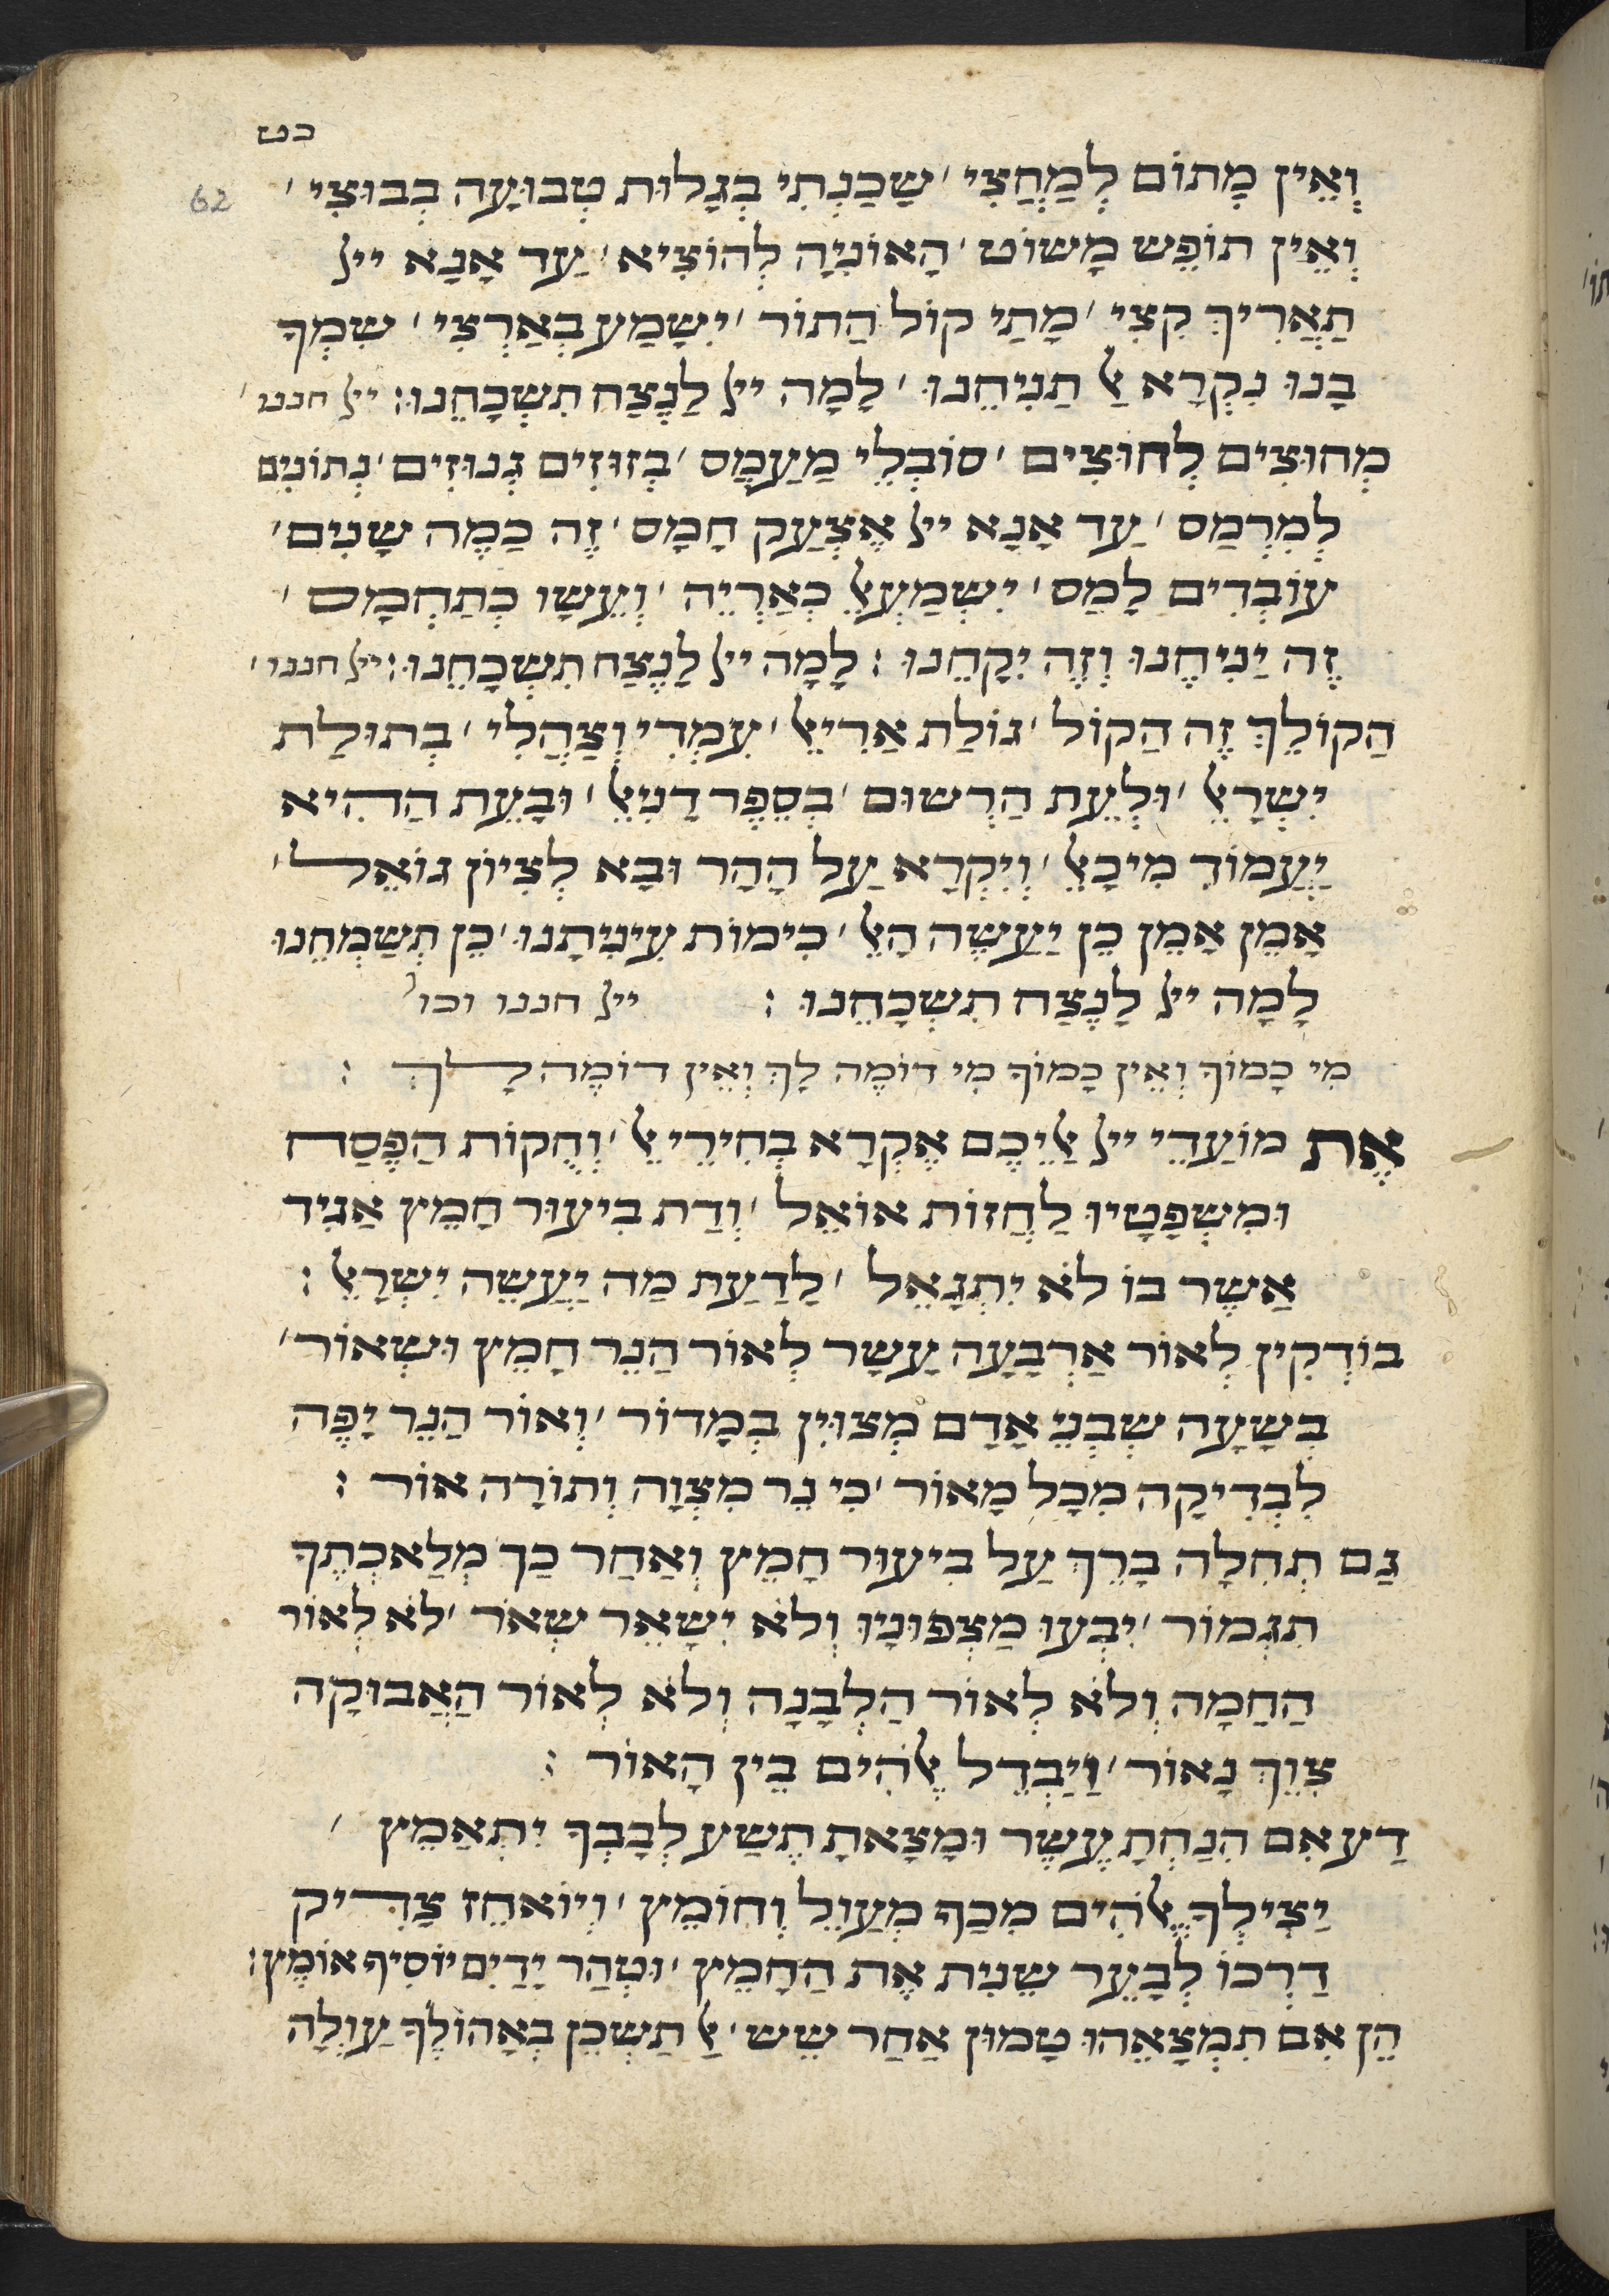 כט
62
וְאֵין מְתוֹם לְמַחֲצִי ׳ שָׁכַנְתִּי בְּגָלוּת טְבוּעָה בְּבוּצִי ׳
וְאֵין תּוֹפֵשׂ מָשׁוֹט ׳ הָאוֹנִיָּה לְהוֹצִיא ׳ עַד אָנָא ייל
תַּאֲרִיךְ קִצִּי ׳ מָתַי קוֹל הַתּוֹר ׳ יִשָּׁמַע בְּאַרְצִי ׳ שִׁמְךָ
בָּנוּ נִקְרָא אַל תַּנִּיחֵנוּ ׳ לָמָּה ייל לָנֶצַח תִּשְׁכָּחֵנוּ : ייל חננו ׳
מְחוּצִים לְחוּצִים ׳ סוֹבְלֵי מַעֲמָס ׳ בְּזוּזִים גְּנוּזִים ׳ נְתוּנִים
לְמִרְמַס ׳ עַד אָנָא ייל אֶצְעַק חָמָס ׳ זֶה כַּמֶּה שָׁנִים ׳
עוֹבְדִים לָמַס ׳ יִשְׁמָעֵאל כְּאַרְיֵה ׳ וְעֵשָׂו כְּתַחְמָס ׳
זֶה יַנִּיחֶנּוּ וְזֶה יִקָּחֵנוּ : לָמָּה ייל לָנֶצַח תִּשְׁכָּחֵנוּ : ייל חננו ׳
הַקוֹלֵךְ זֶה הַקּוֹל ׳ גּוֹלַת אֲרִיאֵל ׳ עִמְדִי וְצַהֲלִי ׳ בְּתוּלַת
יִשְׂרָאֵל ׳ וּלְעֵת הַרְשׁוּם ׳ בְּסֵפֶר דָּנִיֵּאל ׳ וּבָעֵת הַהִיא
יַעֲמוֹד מִיכָאֵל ׳ וְיִקְרָא עַל הָהָר וּבָא לְצִיּוֹן גּוֹאֵל ׳
אָמֵן אָמֵן כֵּן יַעֲשֶׂה הָאֵל ׳ כִּימוֹת עִינִּיתָנוּ ׳ כֵּן תְּשַׂמְּחֵנוּ
לָמָּה ייל לָנֶצַח תִּשְׁכָּחֵנוּ : ייל חננו וכו׳
מִי כָּמוֹךָ וְאֵין כָּמוֹךָ מִי דוֹמֶה לָּךְ וְאֵין דּוֹמֶה לָךְ :
אֶת מוֹעֲדֵי ייל אֲלֵיכֶם אֶקְרָא בְּחִירֵי אֵל ׳ וְחֻקּוֹת הַפֶּסַח
וּמִשְׁפָּטָיו לַחֲזוֹת אוֹאֵל ׳ וְדַת בִּיעוּר חָמֵץ אַגִּיד
אֲשֶׁר בּוֹ לֹא יִתְגָּאֵל ׳ לָדַעַת מַה יַּעֲשֶׂה יִשְׂרָאֵל :
בּוֹדְקִין לְאוֹר אַרְבָּעָה עָשָׂר לְאוֹר הַנֵּר חָמֵץ וּשְׂאוֹר ׳
בְּשָׁעָה שֶׁבְּנֵי אָדָם מְצוּיִין בְּמָדוֹר ׳ וְאוֹר הַנֵּר יָפֶה
לִבְדִיקָה מִכָּל מָאוֹר ׳ כִּי נֵר מִצְוָה וְתוֹרָה אוֹר :
גַּם תְּחִלָּה בָּרֵךְ עַל בִּיעוּר חָמֵץ וְאַחַר כָּךְ מְלַאכְתֶּךָ
תִגְמוֹר ׳ יִבְעוּ מַצְפּוּנָיו וְלֹא יִשָּׁאֵר שְׂאֹר ׳ לֹא לְאוֹר
הַחַמָּה וְלֹא לְאוֹר הַלְּבָנָה וְלֹא לְאוֹר הָאֲבוּקָה
צִוָּךְ נָאוֹר ׳ וַיַּבְדֵּל אֱלֹהִים בֵּין הָאוֹר :
דַּע אִם הִנַּחְתָּ עֶשֶׂר וּמָצָאתָ תֶשַׁע לְבָבְךָ יִתְאַמֵּץ ׳
יַצִּילְךָ אֱלֹהִים מִכַּף מְעַוֵּל וְחוֹמֵץ ׳ וְיוֹאחֵז צַדִּיק
דַּרְכּוֹ לְבָעֵר שֵׁנִית אֶת הֶחָמֵץ ׳ וּטְהַר יָדַיִם יוֹסִיף אוֹמֶץ :
הֵן אִם תִּמְצָאֵהוּ טָמוּן אַחַר שֵׁשׁ ׳ אַל תַּשְׁכֵּן בְּאָהֳלֶךָ עַוְלָה